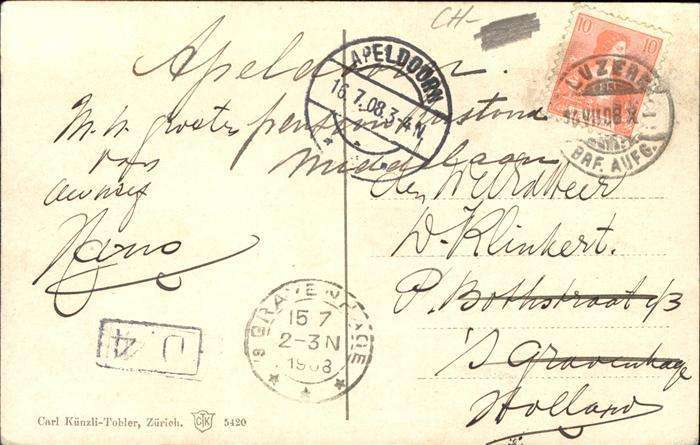 CH-
Apeldoorn.
pension
Middellaan
M. v. groeten
van
Hans
APELDOORN
16.7.08.3-4N
10 10
LUZERN
14.VII.08.X
BRF. AUFG.
den WelEd Heer
D. Klinkert.
P. Bothstraat 1/3
's Gravenhage
Holland
's GRAVENHAGE
15 7
2-3 N
1908
D 4
Carl Künzli-Tobler, Zürich. CTK 5420